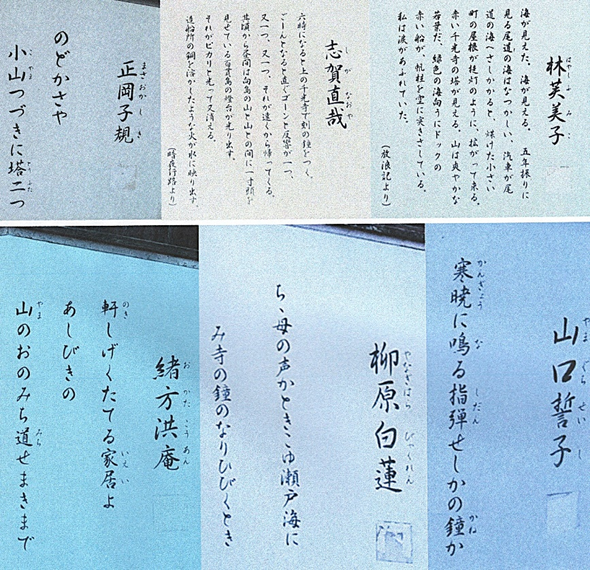 林芙美子
はやしふみこ
海が見えた、海が見える。五年振りに
見る尾道の海はなつかしい、汽車が尾
道の海へさしかかると、煤けた小さい
町の屋根が提灯のように、拡がって来る。
赤い千光寺の塔が見える。山は爽やかな
若葉だ、緑色の海向うにドックの
赤い船が、帆柱を空に突きさしている。
私は涙があふれていた。
(放浪記より)
志賀直哉
しがなおや
六時になると上の千光寺で刻の鐘をつく。
ごーんとなると直ぐゴーンと反響が一つ、
又一つ、又一つ、それが遠くから帰ってくる。
其頃から昼間は向島の山と山との間に一寸頭を
見せている百貫島の燈台が光り出す。
それがピカリと光って又消える。
造船所の銅を溶かしたような火が水に映り出す。
(暗夜行路より)
正岡子規
まさおかしき
のどかさや
小山つづきに塔二つ
こやま ふた
山口誓子
やまぐちせいし
寒暁に鳴る指弾せしかの鐘か
かんぎょう な しだん かね
柳原白蓮
やなぎはらびゃくれん
ちゝ母の声かときこゆ瀬戸海に
み寺の鐘のなりひびくとき
緒方洪庵
おがたこうあん
軒しげくたてる家居よ
のき いえい
あしびきの
山のおのみち道せまきまで
やま みち